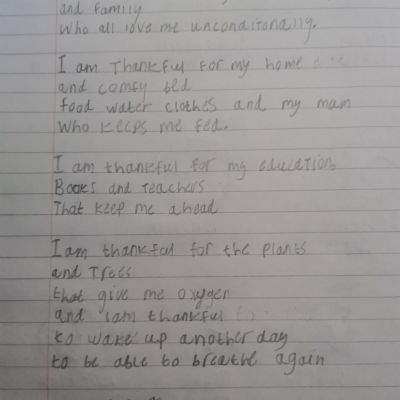 and family
Who all love me unconditonally.
I am Thankful for my home
and comfy bed
food water clothes and my mam
Who keeps me fed.
I am thankful for my education
Books and Teachers
That keep me ahead
I am thankful for the plants
and Trees
that give me oxygen
and iam thankful
to wake up another day
to be able to breathe again